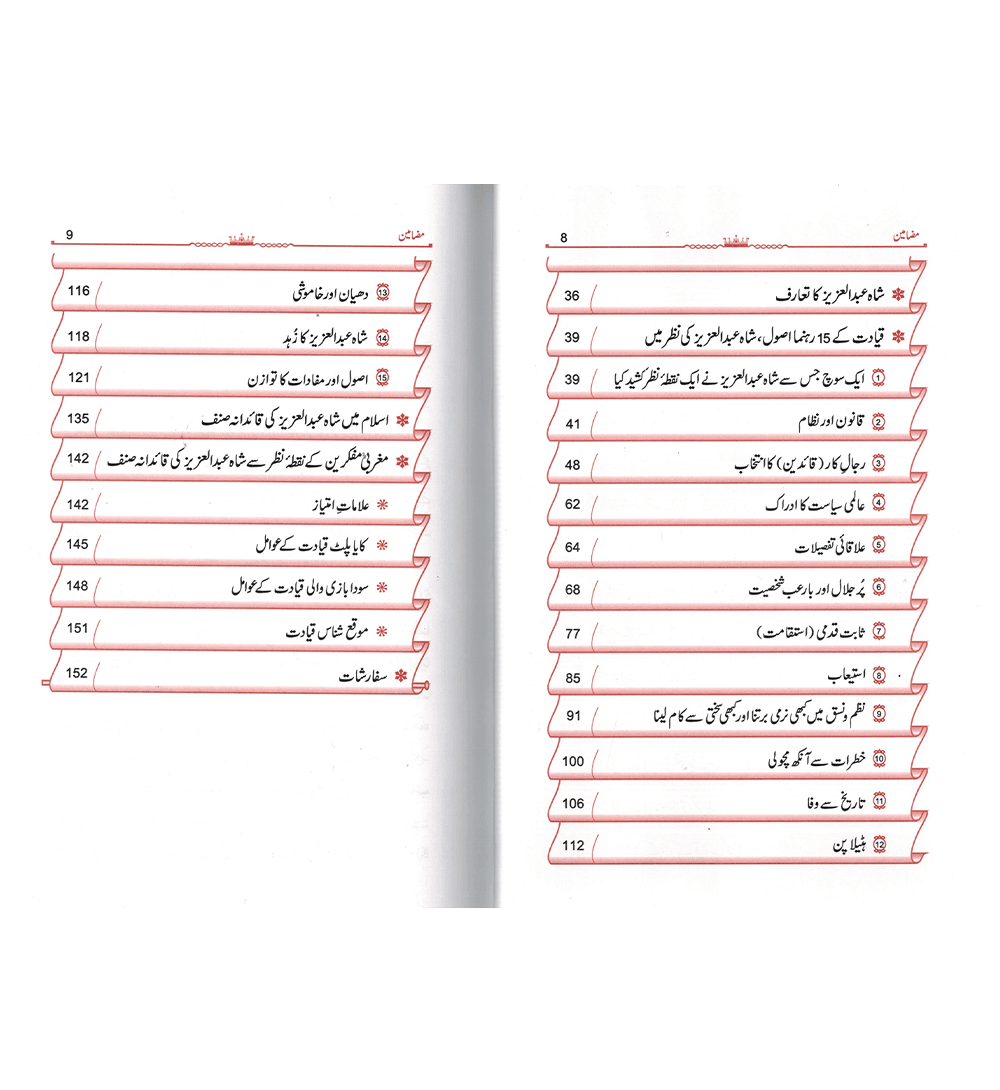 مضامین 8
شاہ عبدالعزیز کا تعارف 36
قیادت کے 15 رہنما اصول، شاہ عبدالعزیز کی نظر میں 39
1 ایک سوچ جس سے شاہ عبدالعزیز نے ایک نقطۂ نظر کشید کیا 39
2 قانون اور نظام 41
3 رجالِ کار (قائدین) کا انتخاب 48
4 عالمی سیاست کا ادراک 62
5 علاقائی تفصیلات 64
6 پُر جلال اور بارعب شخصیت 68
7 ثابت قدمی (استقامت) 77
8 استیعاب 85
9 نظم و نسق میں کبھی نرمی برتنا اور کبھی سختی سے کام لینا 91
10 خطرات سے آنکھ مچولی 100
11 تاریخ سے وفا 106
12 ہٹیلا پن 112
مضامین 9
13 دھیان اور خاموشی 116
14 شاہ عبدالعزیز کا زُہد 118
15 اصول اور مفادات کا توازن 121
اسلام میں شاہ عبدالعزیز کی قائدانہ صنف 135
مغربی مفکرین کے نقطۂ نظر سے شاہ عبدالعزیز کی قائدانہ صنف 142
علاماتِ امتیاز 142
کایا پلٹ قیادت کے عوامل 145
سودا بازی والی قیادت کے عوامل 148
موقع شناس قیادت 151
سفارشات 152